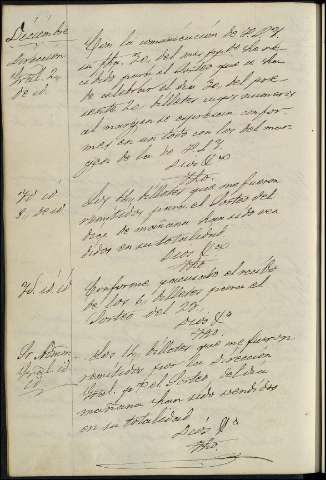 Diciembre
Dirección
Gral. 2
de id.
Con la comunicación de V.S.Y.
fha. 30, del mes ppdo. he re-
cibido para el Sorteo que se ha
de celebrar el día 30, del pre-
sente 20, billetes cuyos números
al margen se expresan confor-
mes en un todo con los del mar-
gen de la de V.S.Y.
Dios &a
Fho.
Id. id.
9, de id.
Los 14 billetes que me fueron
remitidos para el Sorteo del
diez de mañana han sido ven-
didos en su totalidad
Dios &a
Fho.
Id. id. id.
Conforme pasando el recibo
de los 6, billetes para el
Sorteo del 23.
Dios &a
Fho.
Sr. Admor.
Gral. id.
id.
Los 14, billetes que me fueron
remitidos por la Dirección
Gral. pa. el Sorteo, del día
mañana han sido vendidos
en su totalidad
Dios &a
Fho.